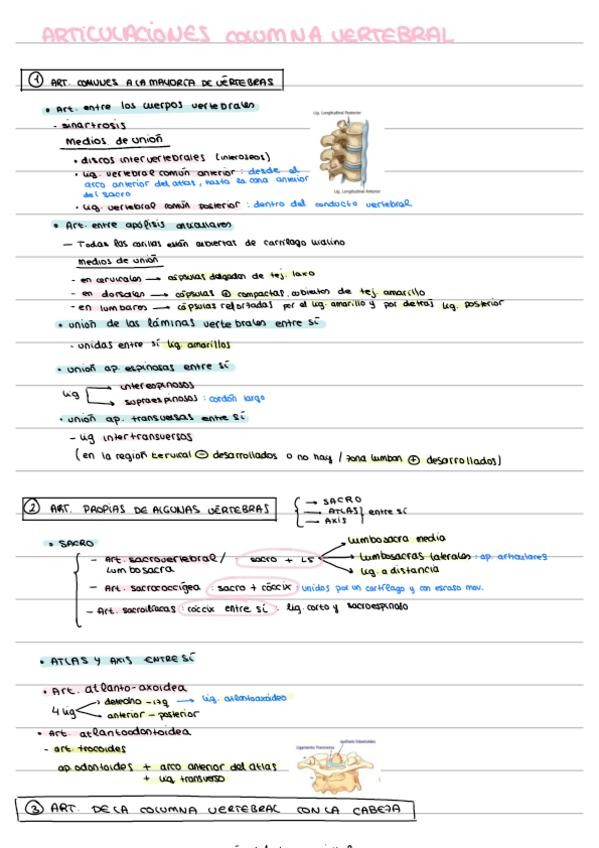 ARTICULACIONES COLUMNA VERTEBRAL
① ART. COMUNES A LA MAYORÍA DE VÉRTEBRAS
• Art. entre los cuerpos vertebrales
- sinartrosis
Medios de unión
• discos intervertebrales (interóseos)
• lig. vertebral común anterior : desde el
arco anterior del atlas, hasta la cara anterior
del sacro
• lig. vertebral común posterior : dentro del conducto vertebral
Lig. Longitudinal Posterior
Lig. Longitudinal Anterior
• Art. entre apófisis articulares
— Todas las carillas están cubiertas de cartílago hialino
Medios de unión
- en cervicales → cápsulas delgadas de tej. laxo
- en dorsales → cápsulas ⊕ compactas, cubiertas de tej. amarillo
- en lumbares → cápsulas reforzadas por el lig. amarillo y por detrás lig. posterior
• unión de las láminas vertebrales entre sí
- unidas entre sí lig. amarillos
• unión ap. espinosas entre sí
lig → interespinosos
→ supraespinosos : cordón largo
• unión ap. transversas entre sí
- lig intertransversos
(en la región cervical ⊖ desarrollados o no hay / zona lumbar ⊕ desarrollados)
② ART. PROPIAS DE ALGUNAS VÉRTEBRAS
→ SACRO
→ ATLAS
→ AXIS
entre sí
• SACRO
- Art. sacrovertebral / lumbosacra : sacro + L5
→ lumbosacra media
→ lumbosacras laterales : ap. articulares
→ lig. a distancia
- Art. sacrococcígea : sacro + cóccix : unidos por un cartílago y con escaso mov.
- Art. sacroilíacas : cóccix entre sí : lig. corto y sacroespinoso
• ATLAS Y AXIS ENTRE SÍ
• Art. atlanto-axoidea
4 lig → derecho - izq → lig. atlantoaxoideo
→ anterior - posterior
• Art. atlantoodontoidea
- art. trocoides
ap. odontoides + arco anterior del atlas
+ lig. transverso
Ligamento Transverso
Apófisis Odontoides
③ ART. DE LA COLUMNA VERTEBRAL CON LA CABEZA